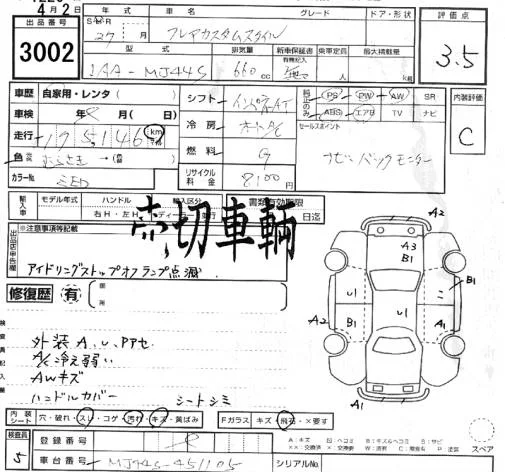 4月2日
年式 車名 グレード ドア・形状 評価点
出品番号
3002
H·R 27年 月 フレアカスタムスタイル
3.5
型式 排気量 新車保証書 乗車定員 最大積載量
有無記入
1AA-MJ44S 660cc 無 人 kg
車歴 自家用・レンタ( )
シフト インパネAT
PS PW AW SR
ABS エアB TV ナビ
内装評価
C
車検 年 月( 日)
冷房 オートAC
セールスポイント
走行 195,146 km
燃料 G
ナビ バックモニター
色 むらさき
リサイクル料金 8,100円
カラーNo. ZED
輸入車 モデル年式 ハンドル 輸入区分 書類有効期限
右H・左H ディーラー・並行 日迄
売切車輌
※注意事項等記載
出品店申告欄
アイドリングストップオフランプ点滅
修復歴 有
箇所
外装A、U、PPセ
A/C冷え弱い
AWキズ
ハンドルカバー シートシミ
A2
A3
B1
U1 U1 B1
A2 B1 A1
A1
内装シート 穴・破れ・スレ・コゲ・汚れ・キズ・黄ばみ Fガラス キズ・飛石・×要す
検査員 5
登録番号
車台番号 MJ44S-451105
シリアルNo.
A:キズ U:ヘコミ B:キズ&ヘコミ S:サビ
××:交換済 X:要交換 W:波有 C:腐食有 P:塗装
スペア